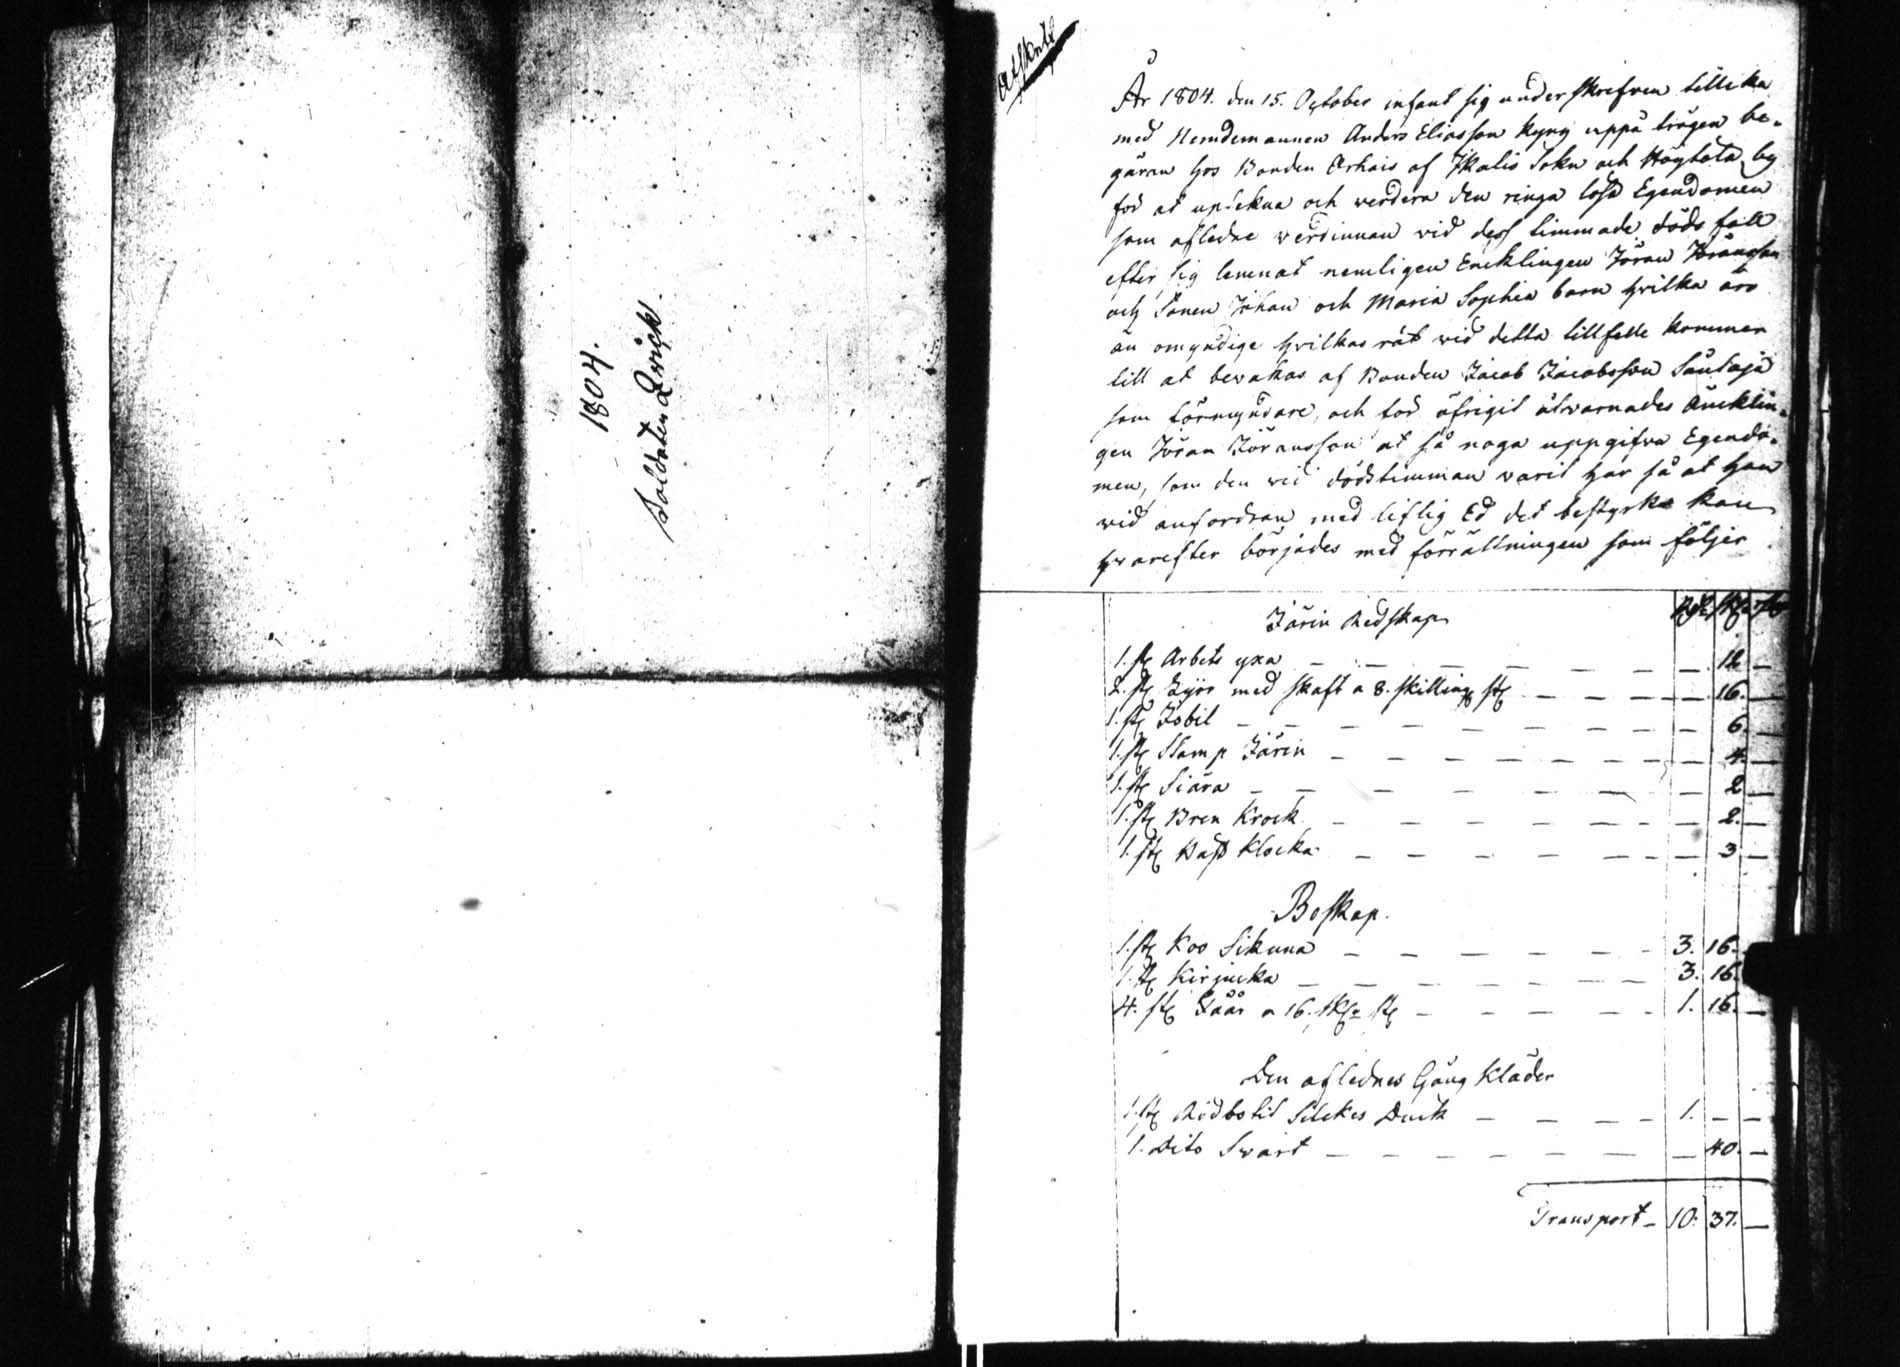 1804.
Soldaten Qvick.
Afskrift
År 1804. den 15. October infant sig underskrefven tillika
med Nemdemannen Anders Eliasson Kyny uppå trägen be-
gäran hos Bonden Arhais af Ikalis Sokn och Höytölä by
för at upteckna och verdera den ringa lösa Egendomen
som afledne werdinnan wid dess timmade döds fall
efter sig lemnat nemligen Encklingen Jöran Jöransson
och Sonen Johan och Maria Sophia barn hvilka äro
än omyndige hvilkas rät wid detta tillfelle kommer
till at bevakas af Bonden Jacob Jacobsson
som förmyndare, och för öfrigit åtvarnades Äncklin-
gen Jöran Jöransson at så noga uppgifva Egendo-
men, som den vid dödstimman varit har så at han
wid anfordran med liflig Ed det bestyrka kan
hvarefter börjades med förrättningen som följer
Järin Redskap Rd. Sk. rst
1. st Arbets yxa 12
2. st Lijor med skaft a 8. skilling st 16.
1. st 6.
1. st Stamp Järin 4.
1. st Siära 2
1. st Bren Krock 2.
1. st Klocka 3
Boskap.
1. st Koo Sikuna 3. 16.
1. st Kirjucka 3. 16.
4. st Fåår a 16. sk: st 1. 16.
Den aflednes Gång Kläder
1. st Rödbotit Silckes Duck 1.
1. Dito Svart 40.
Transport 10. 37.